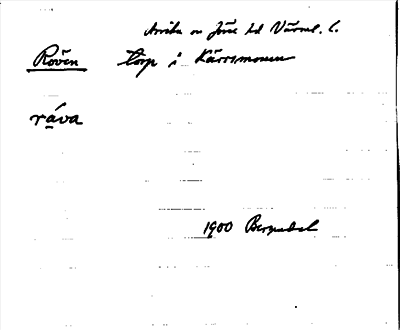 Arvika sn Jösse hd Värml. l.
Rövän torp i Kärrsmossen
råva
1900 Bergsdal